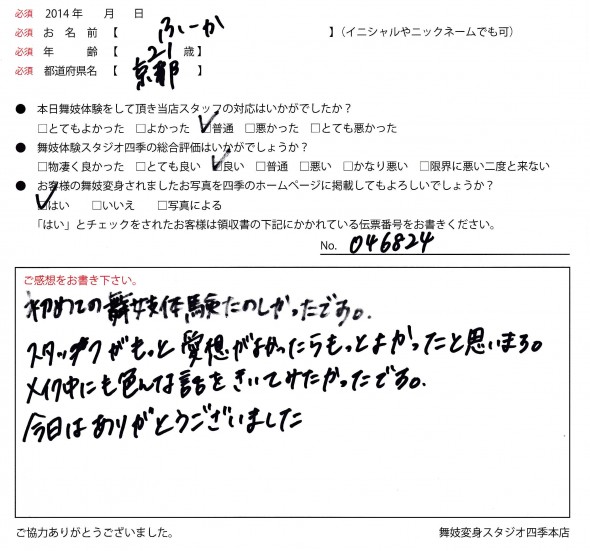 必須 2014年 月 日
必須 お名前【 ふーか 】（イニシャルやニックネームでも可）
必須 年齢【 21 歳】
必須 都道府県名【 京都 】
● 本日舞妓体験をして頂き当店スタッフの対応はいかがでしたか？
□とてもよかった □よかった ☑普通 □悪かった □とても悪かった
● 舞妓体験スタジオ四季の総合評価はいかがでしょうか？
□物凄く良かった □とても良い ☑良い □普通 □悪い □かなり悪い □限界に悪い二度と来ない
● お客様の舞妓変身されましたお写真を四季のホームページに掲載してもよろしいでしょうか？
☑はい □いいえ □写真による
「はい」とチェックをされたお客様は領収書の下記にかかれている伝票番号をお書きください。
No. 046824
ご感想をお書き下さい。
初めての舞妓体験たのしかったです。
スタッフがもっと愛想がよかったらもっとよかったと思います。
メイク中にも色んな話をきいてみたかったです。
今日はありがとうございました
ご協力ありがとうございました。 舞妓変身スタジオ四季本店